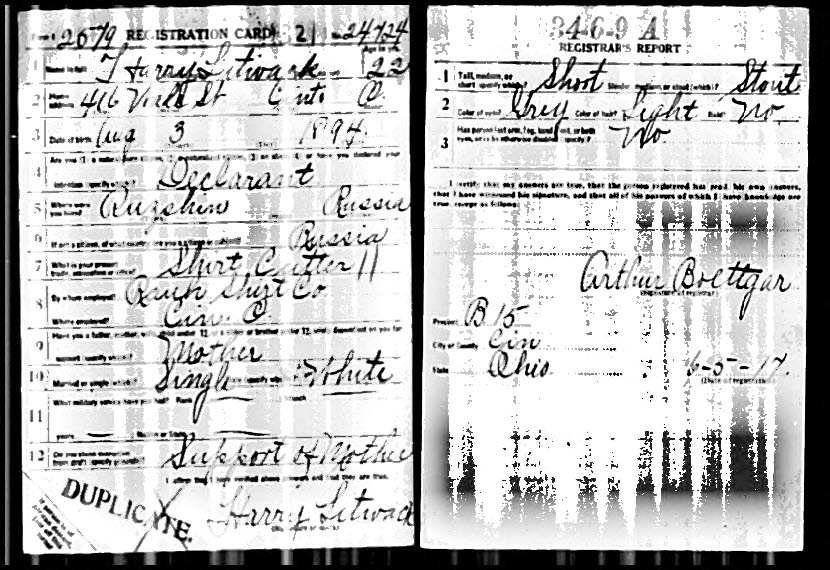 2679 REGISTRATION CARD 21 No. 24724
1 Name in full Harry Litwack Age in yrs. 22
2 Home address 416 St Cinti O
3 Date of birth Aug 3 1894
4 Are you (1) a natural-born citizen, (2) a naturalized citizen, (3) an alien, (4) or have you declared your
intention (specify which)? Declarant
5 Where were you born? Russia
6 If not a citizen, of what country are you a citizen or subject? Russia
7 What is your present trade, occupation or office? Shirt Cutter 11
8 By whom employed? Shirt Co
Where employed? Cin. O.
9 Have you a father, mother, wife, child under 12, or a sister or brother under 12, solely dependent on you for
support (specify which)? Mother
10 Married or single (which)? Single Race (specify which)? White
11 What military service have you had? Rank — branch
years — Nation or State —
12 Do you claim exemption from draft (specify grounds)? Support of Mother
I affirm that I have verified above answers and that they are true.
Harry Litwack
DUPLICATE.
34-6-9 A
REGISTRAR'S REPORT
1 Tall, medium, or short (specify which)? Short Slender, medium, or stout (which)? Stout
2 Color of eyes? Grey Color of hair? Light Bald? No
3 Has person lost arm, leg, hand, foot, or both
eyes, or is he otherwise disabled (specify)? No
I certify that my answers are true, that the person registered has read his own answers,
that I have witnessed his signature, and that all of his answers of which I have knowledge are
true, except as follows:
Arthur Boettgar
(Signature of registrar)
Precinct B 15
City or County Cin
State Ohio 6-5-17.
(Date of registration)